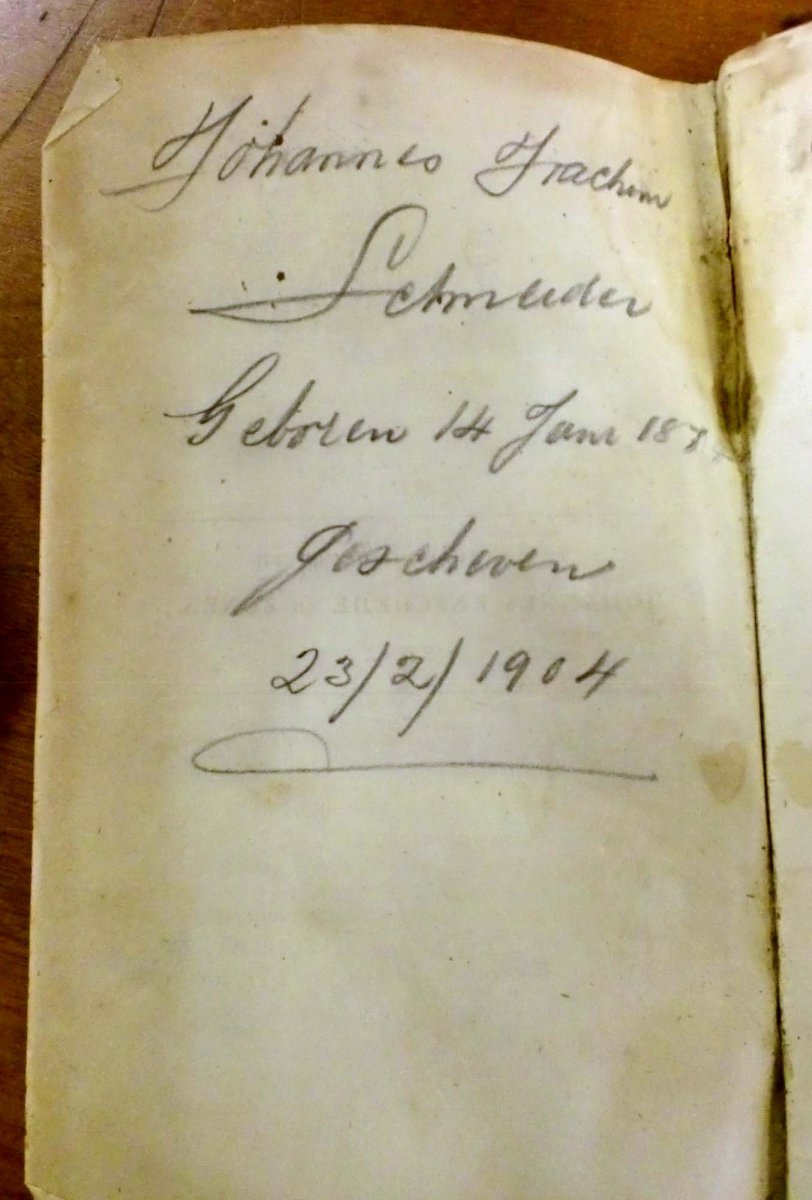 Johannes Jrachim
Schneeder
Geboren 14 Jani 187
gescheven
23/2/1904